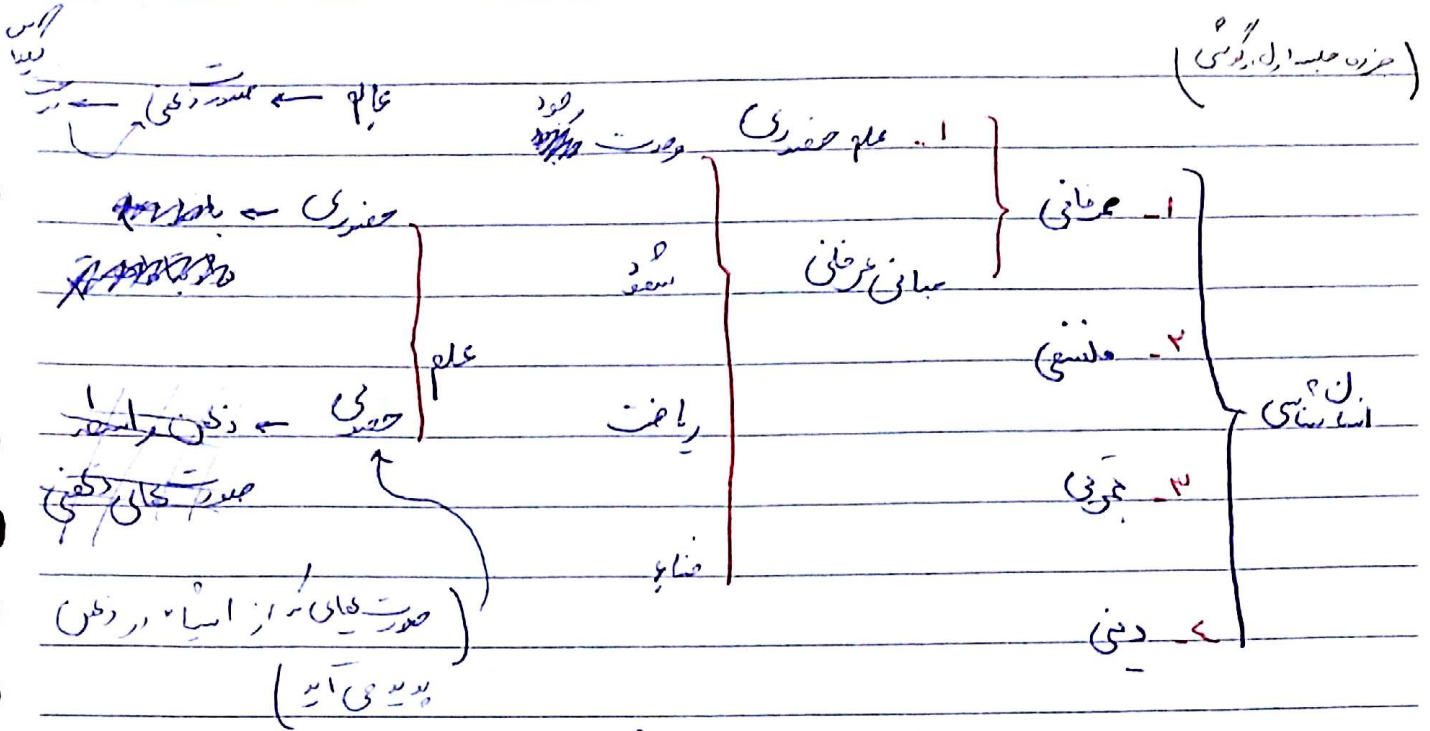 (جزوه جلسه اول گوشی)
انسان شناسی
۱- عرفانی
۲- فلسفی
۳- تجربی
٤- دینی
۱- علم حضوری
مبانی عرفانی
وحدت وجود
شهود
ریاضت
فناء
عالم ← صورت ذهنی ←
علم
حضوری ←
حصولی ← ذهن
صورت های ذهنی
(صورت هایی که از اشیاء در ذهن
پدید می آید)